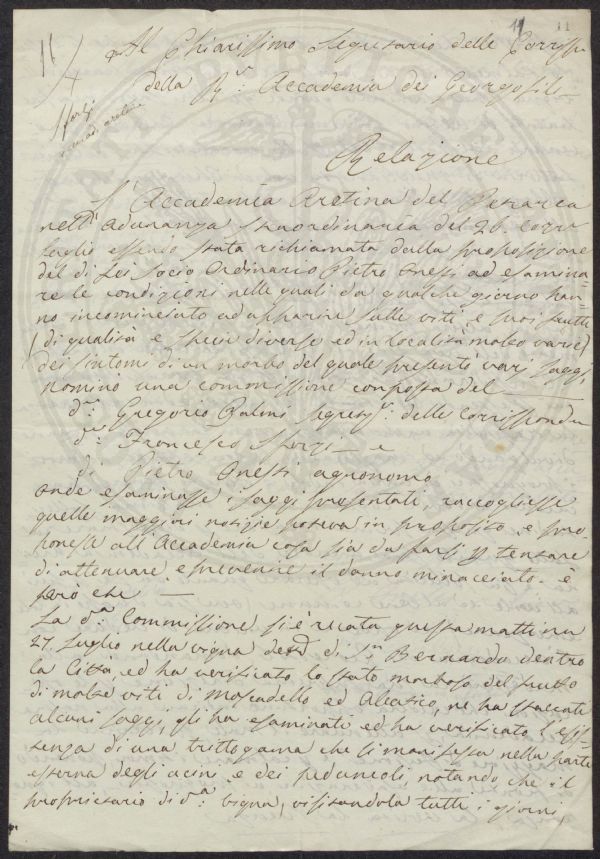 11 11
Al Chiarissimo Segretario delle Corrisp.
della R.: Accademia dei Georgofili
Sforzi
Relazione
L'Accademia Aretina del Petrarca
nell'adunanza straordinaria del 26 corr.
luglio essendo stata richiamata dalla proposizione
del di Lei Socio Ordinario Pietro Onesti ad esamina=
re le condizioni nelle quali da qualche giorno han=
no incominciato ad apparire sulle viti, e suoi frutti
(di qualità e specie diverse ed in località molto varie)
dei sintomi di un morbo del quale presentò varj saggi,
nominò una commissione composta del
d.r Gregorio Segret.: delle corrisponde
d.r Francesco Sforzi e
di Pietro Onesti agronomo
onde esaminasse i saggi presentati, raccogliesse
quelle maggiori notizie poteva in proposito e pro=
ponesse all'Accademia cosa sia da farsi p tentare
di attenuare e prevenire il danno minacciato. è
però che
La d.a Commissione si è recata questa mattina
27. Luglio nella vigna detta di S. Bernardo dentro
la Città, ed ha verificato lo stato morboso del frutto
di molte viti di Moscadello ed Aleatico, ne ha staccati
alcuni saggi, gli ha esaminati ed ha verificato l'esis=
tenza di una trittogama che si manifesta nella parte
esterna degli acini e dei peduncoli, notando che il
proprietario di d.a vigna, visitandola tutti i giorni